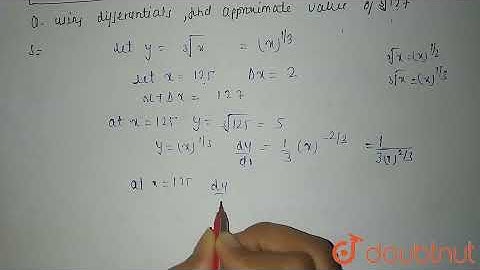 Q. using differentials, find approximate value of ∛127
S=
let y = ∛x = (x)^1/3
let x = 125 Δx = 2
x+Δx = 127
√x = (x)^1/2
∛x = (x)^1/3
at x = 125 y = ∛125 = 5
y = (x)^1/3 dy/dx = 1/3 (x)^-2/3 = 1/3(x)^2/3
at x = 125 dy
doubtnut